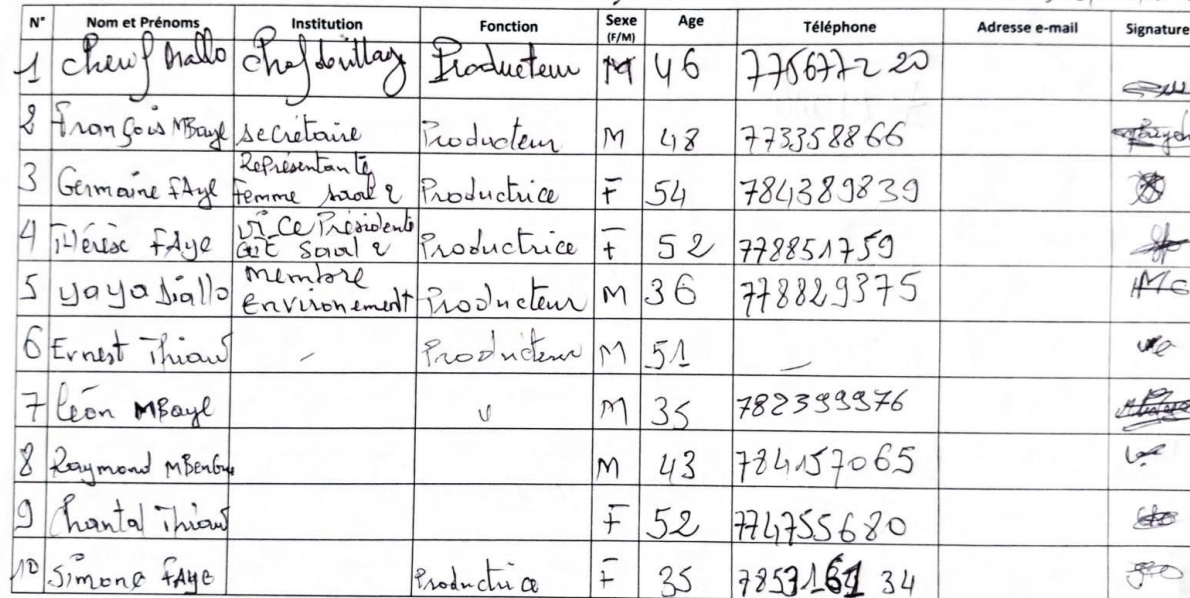 N° Nom et Prénoms Institution Fonction Sexe (F/M) Age Téléphone Adresse e-mail Signature
1 Cherif Diallo Chef de village Producteur M 46 775677220
2 François MBaye secrétaire Producteur M 48 773358866
3 Germaine FAye Représentante femme saval 2 Productrice F 54 784389839
4 Thérèse FAye Vice Présidente saval 2 Productrice F 52 778851759
5 yaya Diallo membre Environement Producteur M 36 778829375
6 Ernest Thiaw - Producteur M 51 -
7 Léon MBaye M 35 782399976
8 Raymond MBengue M 43 784157065
9 Chantal Thiaw F 52 774755680
10 Simone FAye Productrice F 35 7853161 34